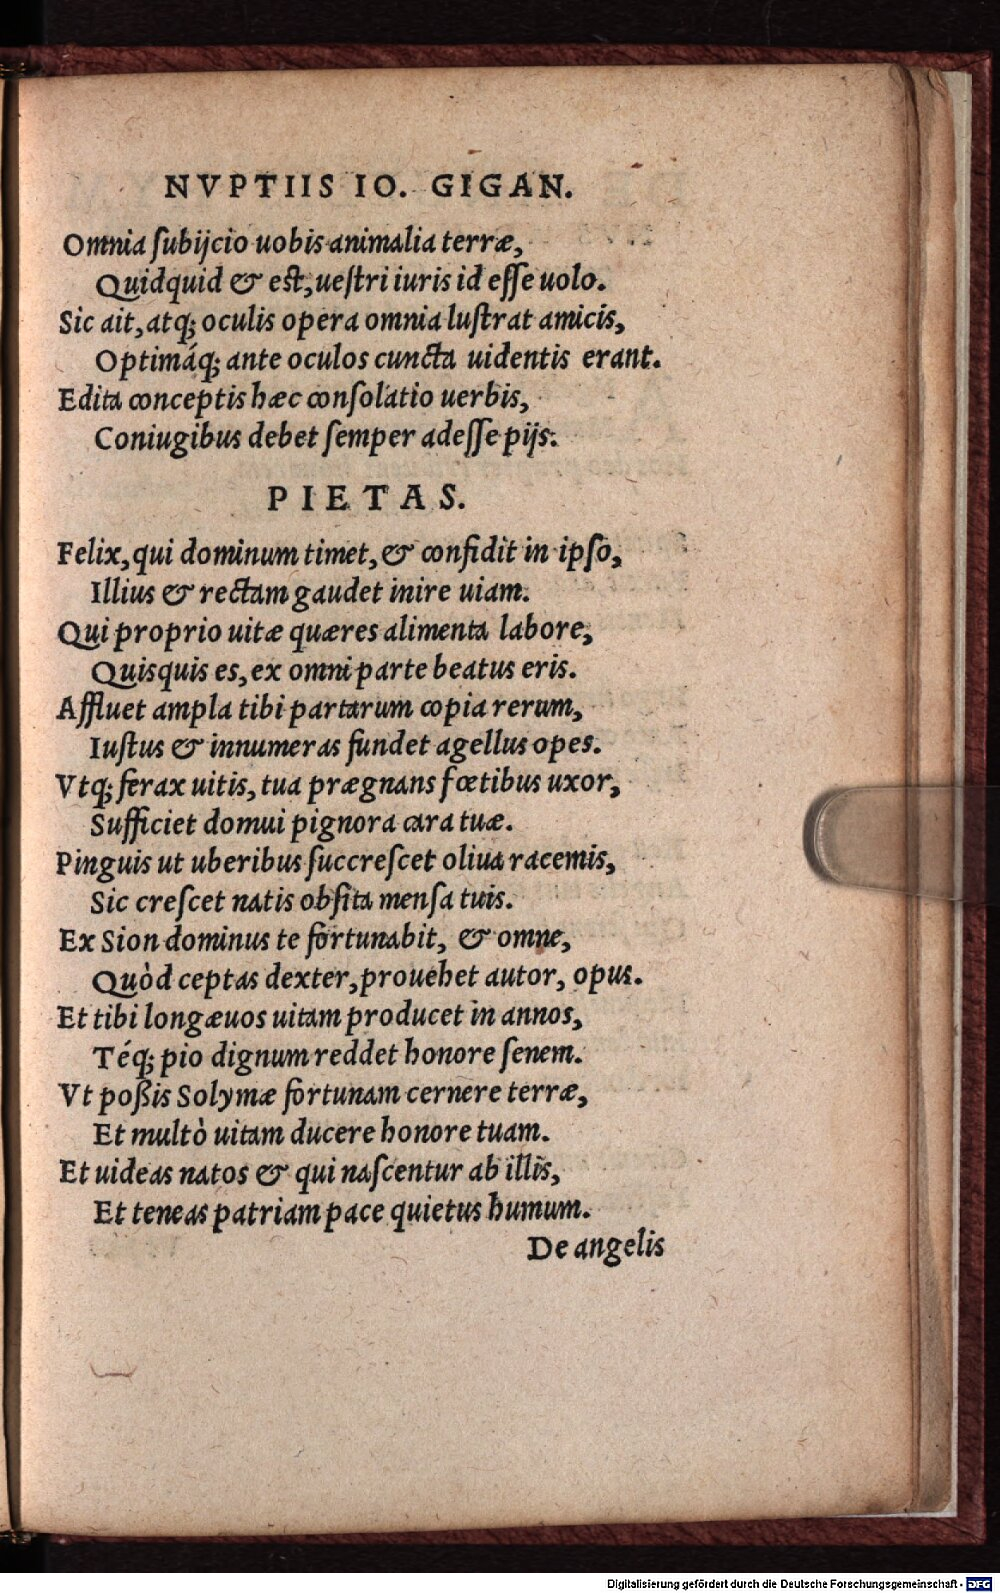 NVPTIIS IO. GIGAN.
Omnia ſubijcio uobis animalia terræ,
Quidquid & eſt, ueſtri iuris id eſſe uolo.
Sic ait, atq; oculis opera omnia luſtrat amicis,
Optimáq; ante oculos cuncta uidentis erant.
Edita conceptis hæc conſolatio uerbis,
Coniugibus debet ſemper adeſſe pijs.
PIETAS.
Felix, qui dominum timet, & confidit in ipſo,
Illius & rectam gaudet inire uiam.
Qui proprio uitæ quæres alimenta labore,
Quisquis es, ex omni parte beatus eris.
Affluet ampla tibi partarum copia rerum,
Iuſtus & innumeras fundet agellus opes.
Vtq; ferax uitis, tua prægnans fœtibus uxor,
Sufficiet domui pignora cara tuæ.
Pinguis ut uberibus ſuccreſcet oliua racemis,
Sic creſcet natis obſita menſa tuis.
Ex Sion dominus te fortunabit, & omne,
Quòd ceptas dexter, prouehet autor, opus.
Et tibi longæuos uitam producet in annos,
Téq; pio dignum reddet honore ſenem.
Vt poßis Solymæ fortunam cernere terræ,
Et multò uitam ducere honore tuam.
Et uideas natos & qui naſcentur ab illis,
Et teneas patriam pace quietus humum.
De angelis
Digitalisierung gefördert durch die Deutsche Forschungsgemeinschaft - DFG